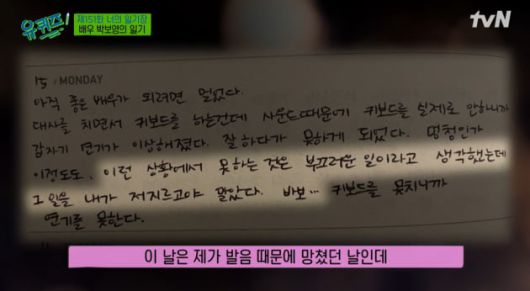 유퀴즈
제151화 너의 일기장
배우 박보영의 일기
tvN
15 / MONDAY
아직 좋은 배우가 되려면 멀었다.
대사를 치면서 키보드를 하는건데 사운드때문에 키보드를 실제로 안하니까
갑자기 연기가 이상해졌다. 잘하다가 못하게 되었다. 멍청인가
이정도도, 이런 상황에서 못하는 것은 부끄러운 일이라고 생각했는데
그 일을 내가 저지르고야 말았다. 바보... 키보드를 못치니까
연기를 못한다.
이 날은 제가 발음 때문에 망쳤던 날인데